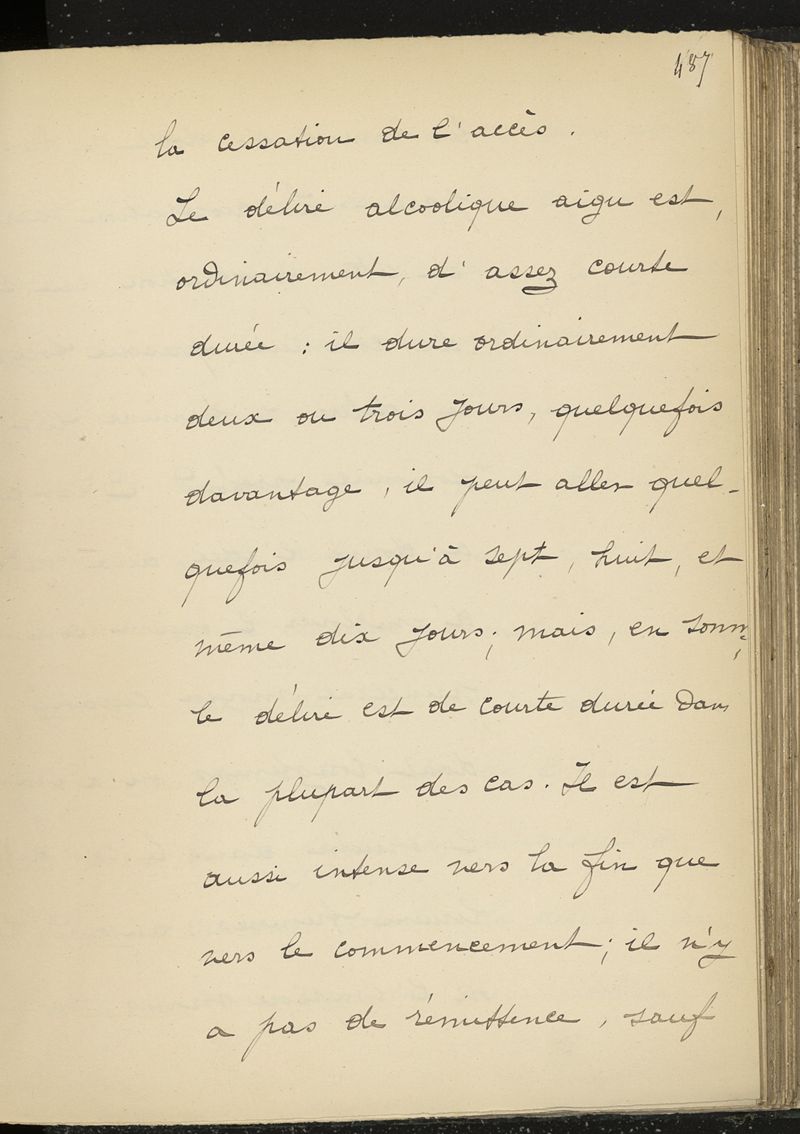 487
la cessation de l'accès.
Le délire alcoolique aigu est,
ordinairement, d'assez courte
durée : il dure ordinairement
deux ou trois jours, quelquefois
davantage, il peut aller quel-
quefois jusqu'à sept, huit, et
même dix jours; mais, en somme,
le délire est de courte durée dans
la plupart des cas. Il est
aussi intense vers la fin que
vers le commencement; il n'y
a pas de rémittence, sauf